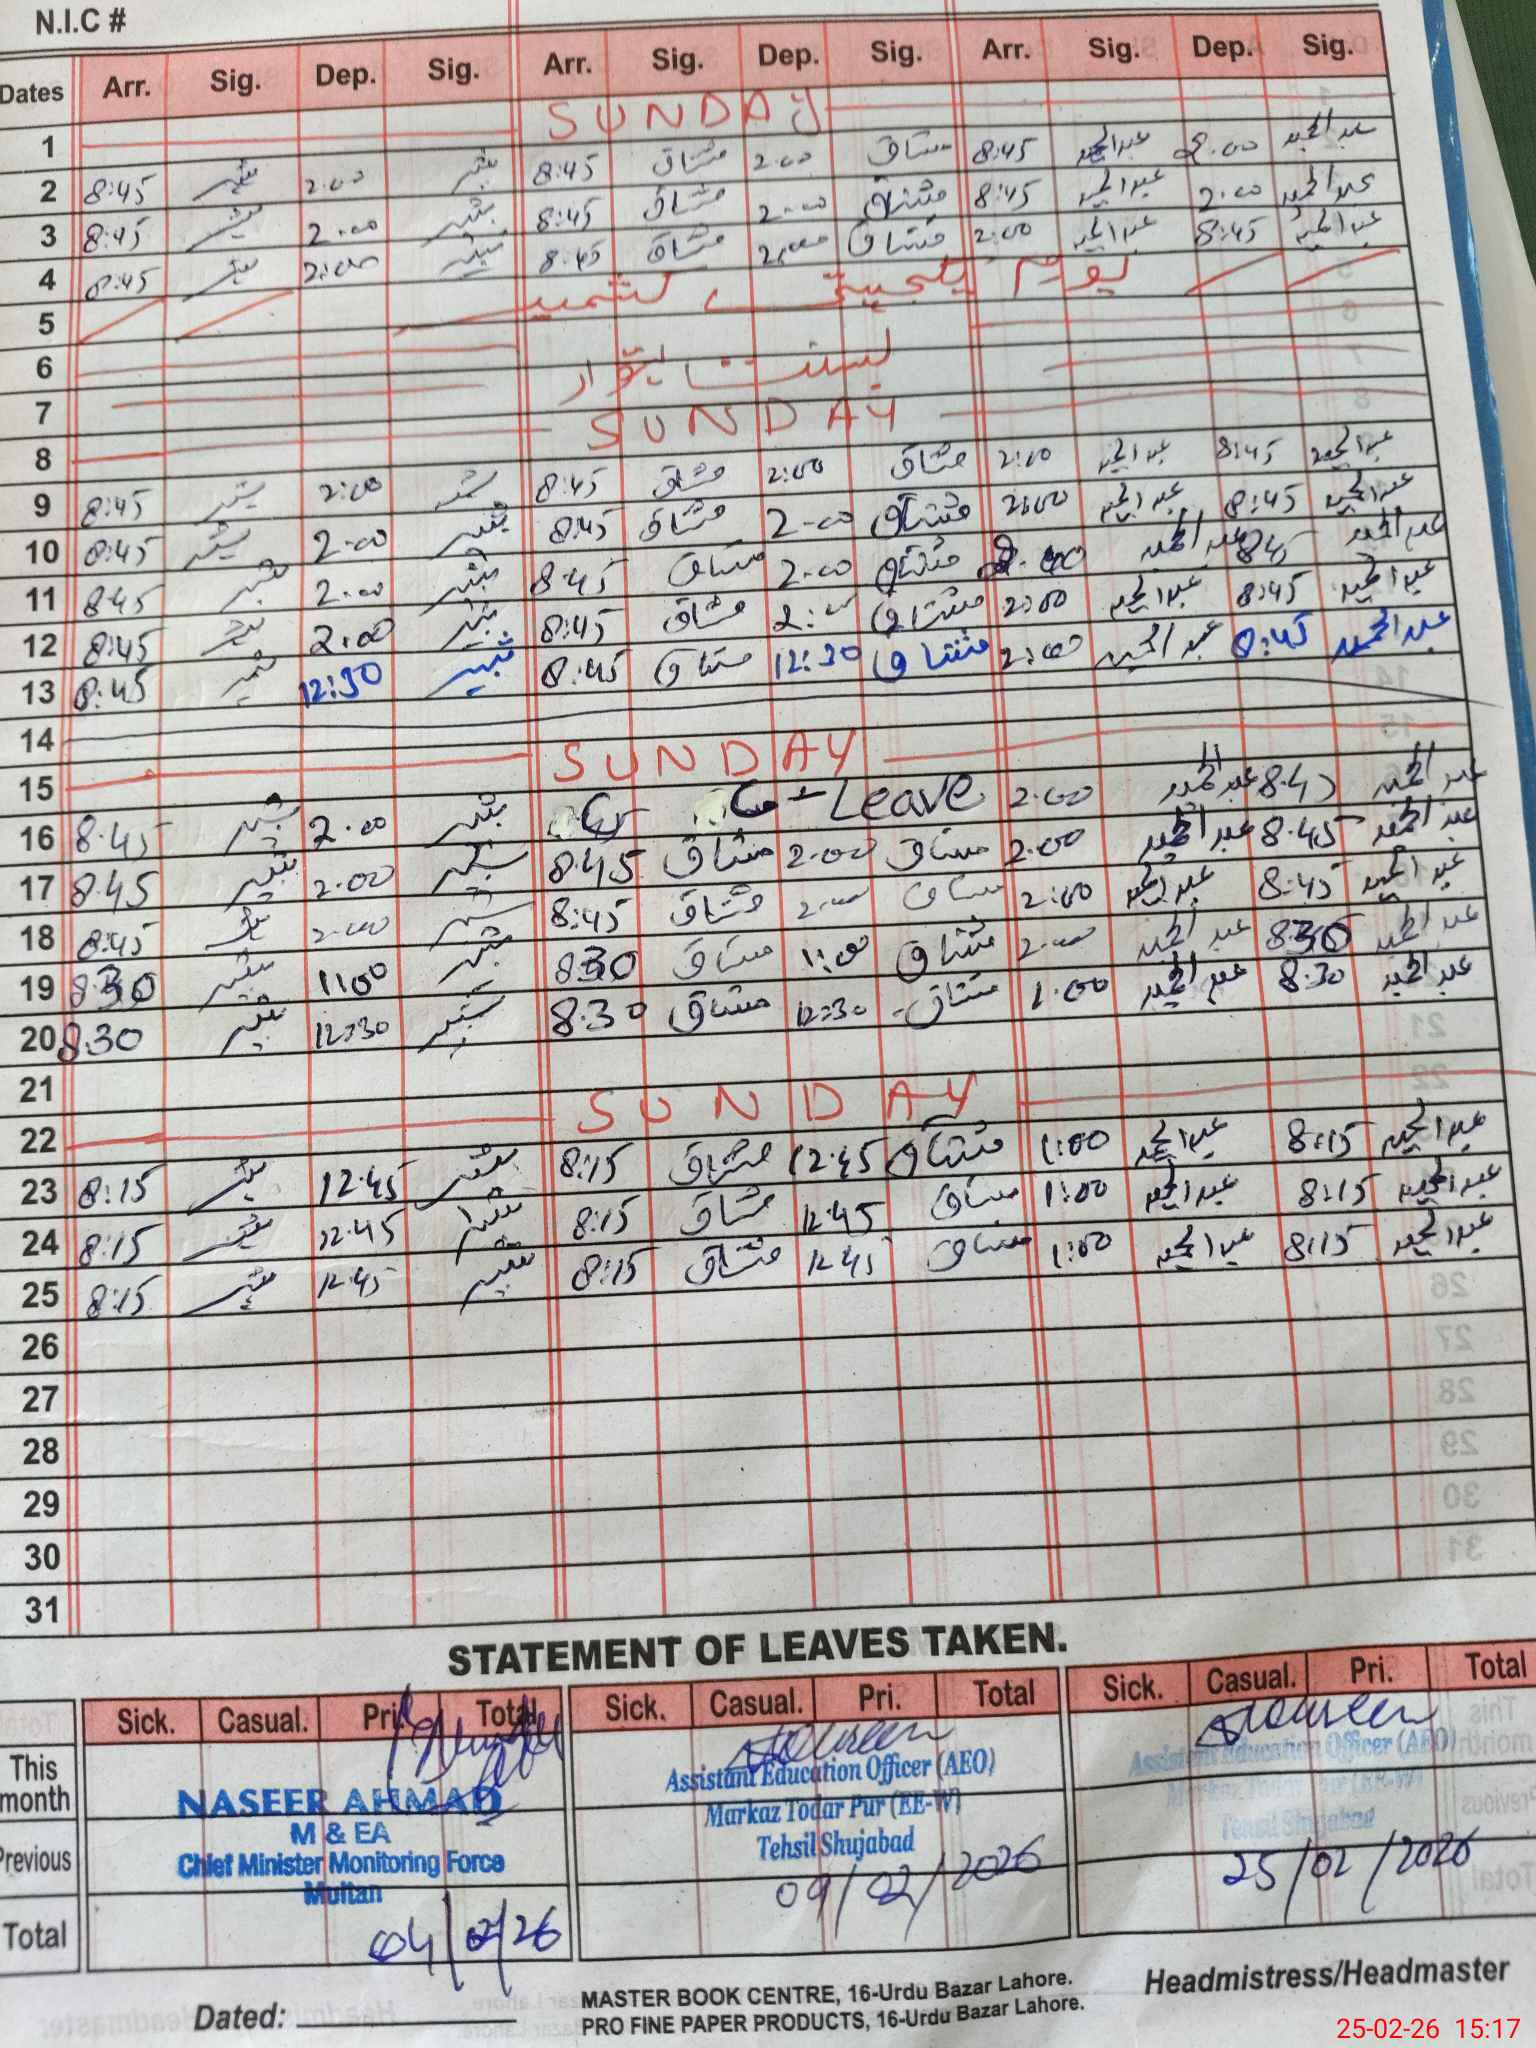 N.I.C #
Dates Arr. Sig. Dep. Sig. Arr. Sig. Dep. Sig. Arr. Sig. Dep. Sig.
1 SUNDAY
2 8:45 2.00 8:45 مشتاق 2.00 مشتاق 8:45 عبدالحمید 2.00 عبدالحمید
3 8:45 2.00 8:45 مشتاق 2.00 مشتاق 8:45 عبدالحمید 2.00 عبدالحمید
4 8:45 2:00 8:45 مشتاق 2:00 مشتاق 2:00 عبدالحمید 8:45 عبدالحمید
5 یوم یکجہتی کشمیر
6
7
8 SUNDAY
9 8:45 2:00 8:45 مشتاق 2:00 مشتاق 2:00 عبدالحمید 8:45 عبدالحمید
10 8:45 2.00 شبیر 8:45 مشتاق 2.00 مشتاق 2:00 عبدالحمید 8:45 عبدالحمید
11 8:45 2.00 شبیر 8:45 مشتاق 2.00 مشتاق عبدالحمید 8:45 عبدالحمید
12 8:45 2.00 8:45 مشتاق مشتاق 2:00 عبدالحمید 8:45 عبدالحمید
13 8:45 12:30 شبیر 8:45 مشتاق 12:30 مشتاق 2:00 عبدالحمید 8:45 عبدالحمید
14
15 SUNDAY
16 8.45 شبیر 2.00 شبیر Leave 2.00 عبدالحمید 8.45 عبدالحمید
17 8.45 شبیر 2.00 شبیر 8.45 مشتاق 2.00 مشتاق 2.00 عبدالحمید 8.45 عبدالحمید
18 8:45 2.00 8:45 مشتاق 2.00 مشتاق 2:00 عبدالحمید 8:45 عبدالحمید
19 8:30 شبیر 11:00 شبیر 8:30 مشتاق 11:00 مشتاق 2.00 عبدالحمید 8:30 عبدالحمید
20 8:30 شبیر 12:30 شبیر 8:30 مشتاق 12:30 مشتاق 1.00 عبدالحمید 8:30 عبدالحمید
21
22 SUNDAY
23 8:15 شبیر 12:45 شبیر 8:15 مشتاق 12.45 مشتاق 1:00 عبدالحمید 8:15 عبدالحمید
24 8:15 شبیر 12.45 شبیر 8:15 مشتاق 12.45 مشتاق 1:00 عبدالحمید 8:15 عبدالحمید
25 8:15 شبیر 12.45 شبیر 8:15 مشتاق 12.45 مشتاق 1:00 عبدالحمید 8:15 عبدالحمید
26
27
28
29
30
31
STATEMENT OF LEAVES TAKEN.
Sick. Casual. Pri. Total Sick. Casual. Pri. Total Sick. Casual. Pri. Total
This month
Previous
Total
NASEER AHMAD
M & EA
Chief Minister Monitoring Force
Multan
04/02/26
Assistant Education Officer (AEO)
Markaz Todar Pur (EE-W)
Tehsil Shujabad
09/02/2026
Assistant Education Officer (AEO)
Markaz Todar Pur (EE-W)
Tehsil Shujabad
25/02/2026
Dated:
MASTER BOOK CENTRE, 16-Urdu Bazar Lahore.
PRO FINE PAPER PRODUCTS, 16-Urdu Bazar Lahore.
Headmistress/Headmaster
25-02-26 15:17